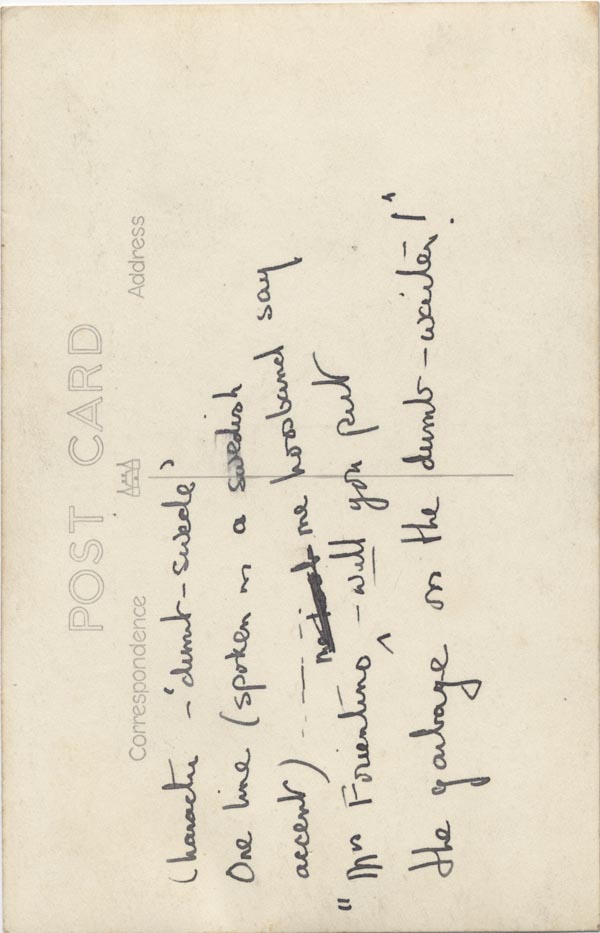 POST CARD
Correspondence
Address
Character - 'dumb-swede'
One line (spoken in a swedish
accent) ----- me hosband say
"Mrs Forientino ^ - will you put
the garbage on the dumb-waiter!"